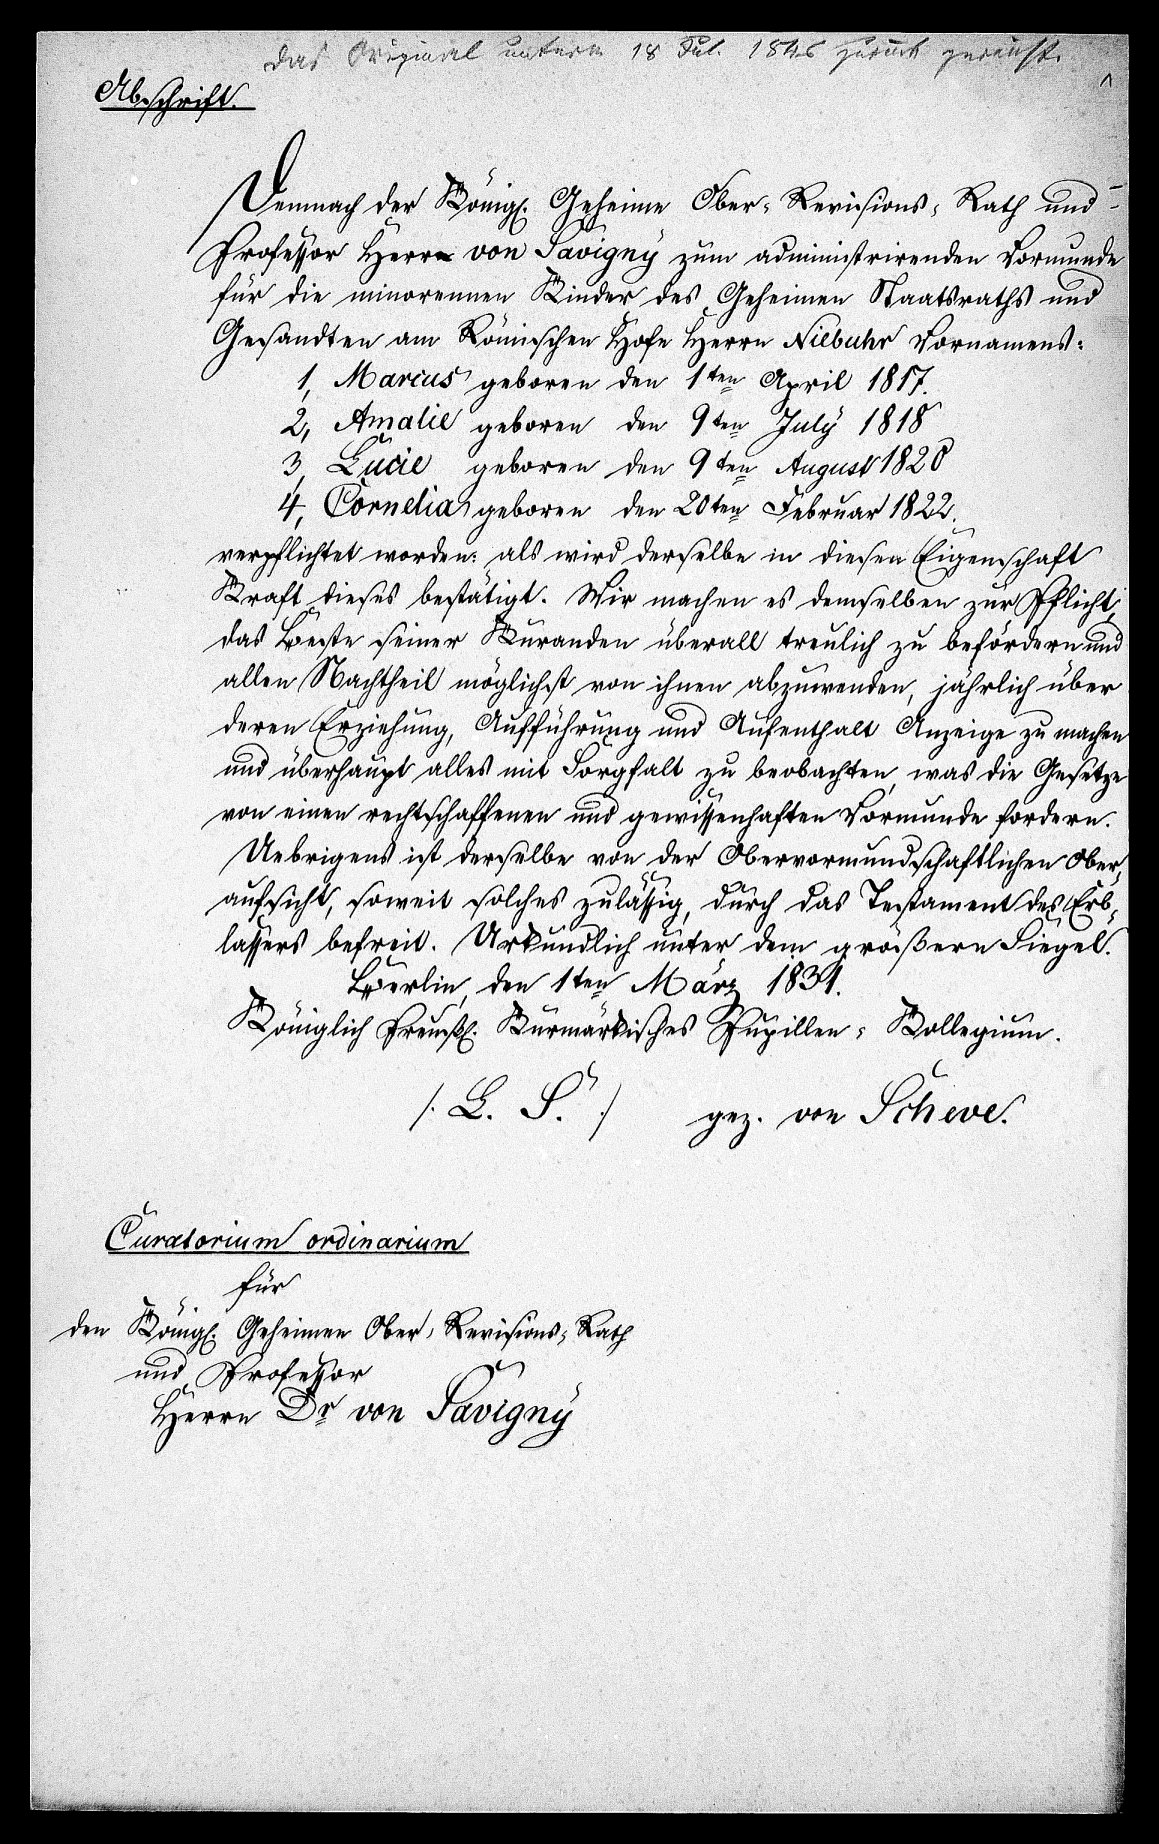 das Original unterm 18 Jul. 1846 zurück gereicht.
Abschrift.
Demnach der Königl. Geheime Ober-Revisions-Rath und
Professor Herr von Savigny zum administrirenden Vormunde
für die minorennen Kinder des Geheimen Staatsraths und
Gesandten am Römischen Hofe Herrn Niebuhr Vornamens:
1, Marcus geboren den 1ten April 1817.
2, Amalie geboren den 9ten July 1818
3, Lucie geboren den 9ten August 1820
4, Cornelia geboren den 20ten Februar 1822.
verpflichtet worden: als wird derselbe in dieser Eigenschaft
Kraft dieses bestätigt. Wir machen es demselben zur Pflicht,
das Beste seiner Kuranden überall treulich zu befördern und
allen Nachtheil möglichst von ihnen abzuwenden, jährlich über
deren Erziehung, Aufführung und Aufenthalt Anzeige zu machen
und überhaupt alles mit Sorgfalt zu beobachten, was die Gesetze
von einen rechtschaffenen und gewissenhaften Vormunde fordern.
Uebrigens ist derselbe von der Obervormundschaftlichen Ober-
aufsicht, soweit solches zulässig, durch das Testament des Erb-
lassers befreit. Urkundlich unter dem größern Siegel.
Berlin, den 1ten März 1831.
Königlich Preuß. Kurmärkisches Pupillen-Kollegium.
/. L. S. ./ gez. von Scheve.
Curatorium ordinarium
für
den Königl. Geheimen Ober-Revisions-Rath
und Professor
Herrn Dr von Savigny